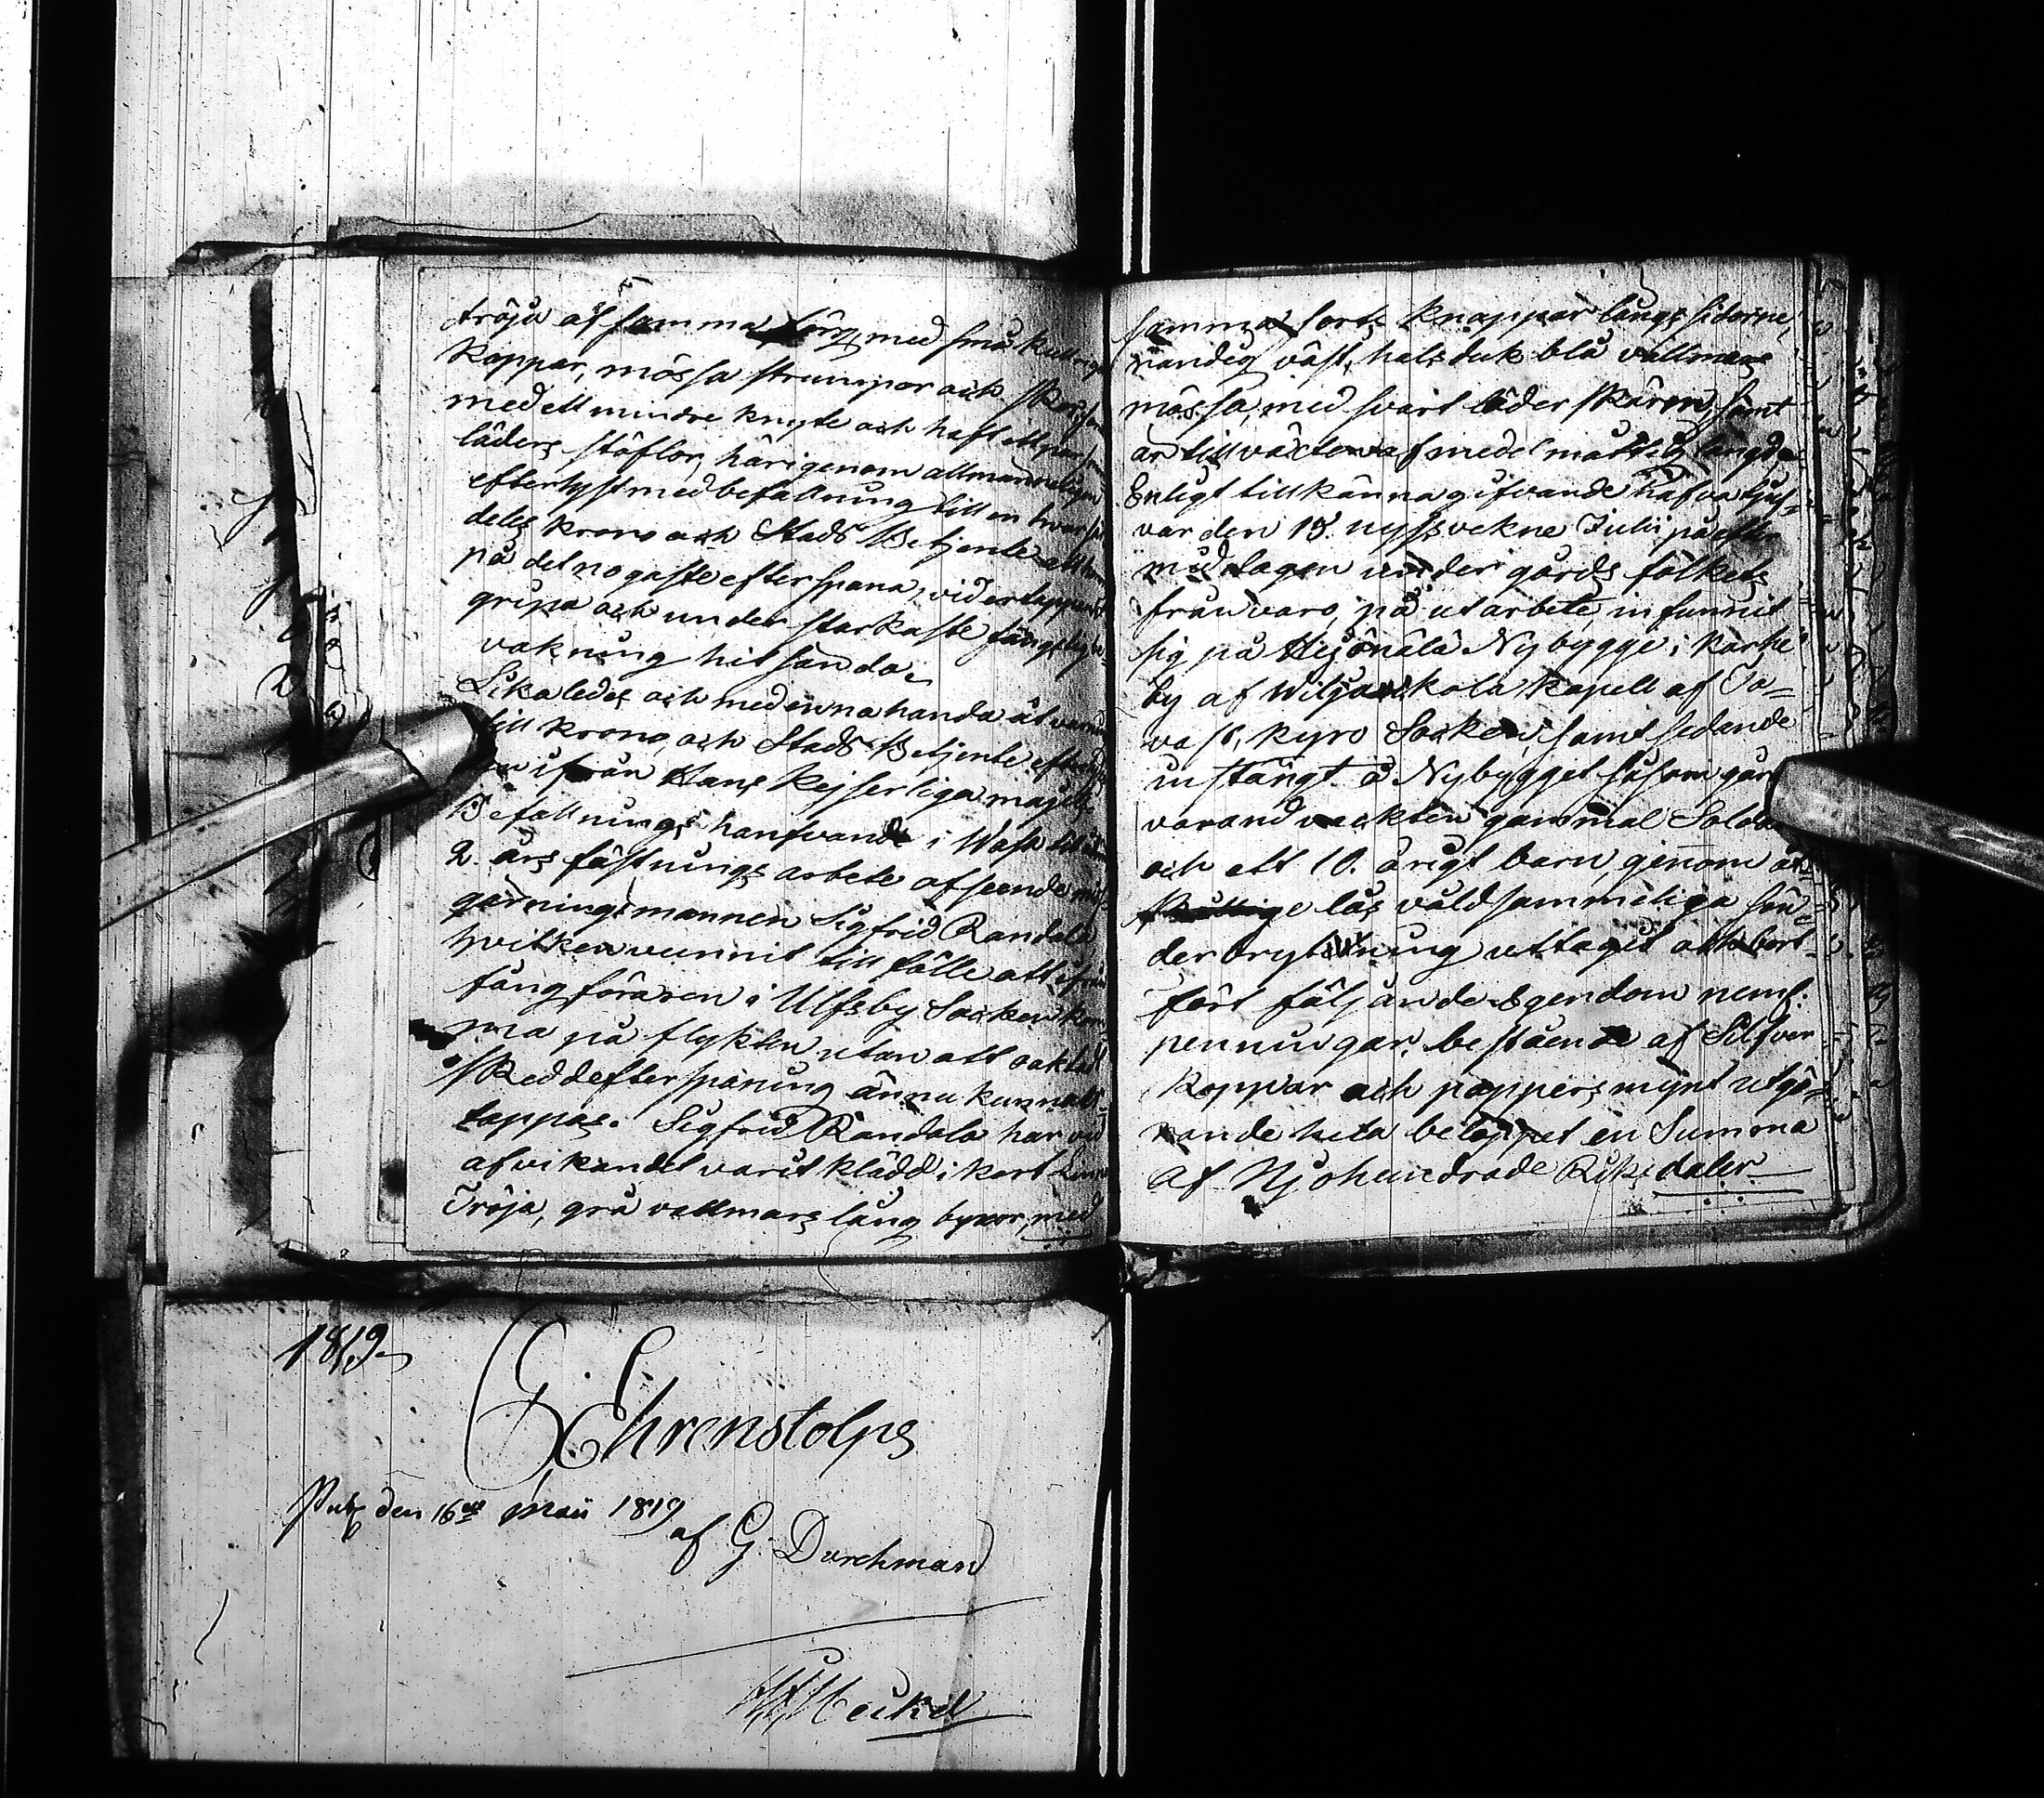 tröja af samma färg med små kullriga
Koppar, mössa strumpor och skor, samt
med ett mindre knyte och haft ett par
läders stöflor, härigenom allmänneligen
efterlyst med befallning till en hvar
deles krono och Stads Betjente att
på det nogaste efterspana, vid ertappande
gripa och under starkaste fängslig be-
vakning hit sända.
Likaledes och med enna handa åtvarning
till krono och Stads Betjente efterlyses
ifrån Hans Kejserliga majtts
Befallningshanfvande i Wasa till
2 års fästnings arbete afsende miss
gärningsmannen Sigfrid Randala
hvilken vunnit tillfälle att ifrån
fångföraren i Ulfsby Socken kom
ma på flykten utan att oaktad
skedd efterspaning ännu kunnat
tappas. Sigfrid Randala har vid
afvikandet varit klädd i kort
Tröja, grå vallmars lång byxor, med
samma sorts knappar längs sidorne,
randig väst, halsduk blå vallmars
mössa, med svart läder skärm, samt
är till växten af medelmåttig längd.
Enligt tillkännagifvande hafva tjuf-
var den 15. nyssvekne Julii på efter
middagen under gårds folkets
frånvaro, på utarbete, infunnit
sig på Nybygge i Karhe
by af Wiljakkala kapell af Ta-
vast, kyro Socken, samt sedan de
instängt å Nybygget såsom går
varand vackten gammal Soldat
och ett 10. årigt barn, genom åt
läs våldsammeliga sön-
derbrytning uttagit och bort-
fört följande Egendom neml:
penningar, bestående af Silfver
Koppar och pappers mynt utgö-
rande hela beloppet en Summa
af Njohundrade Riksdaler
1819
G Ehrenstolpe
Putz den 16de Maii 1819
af G. Durchman